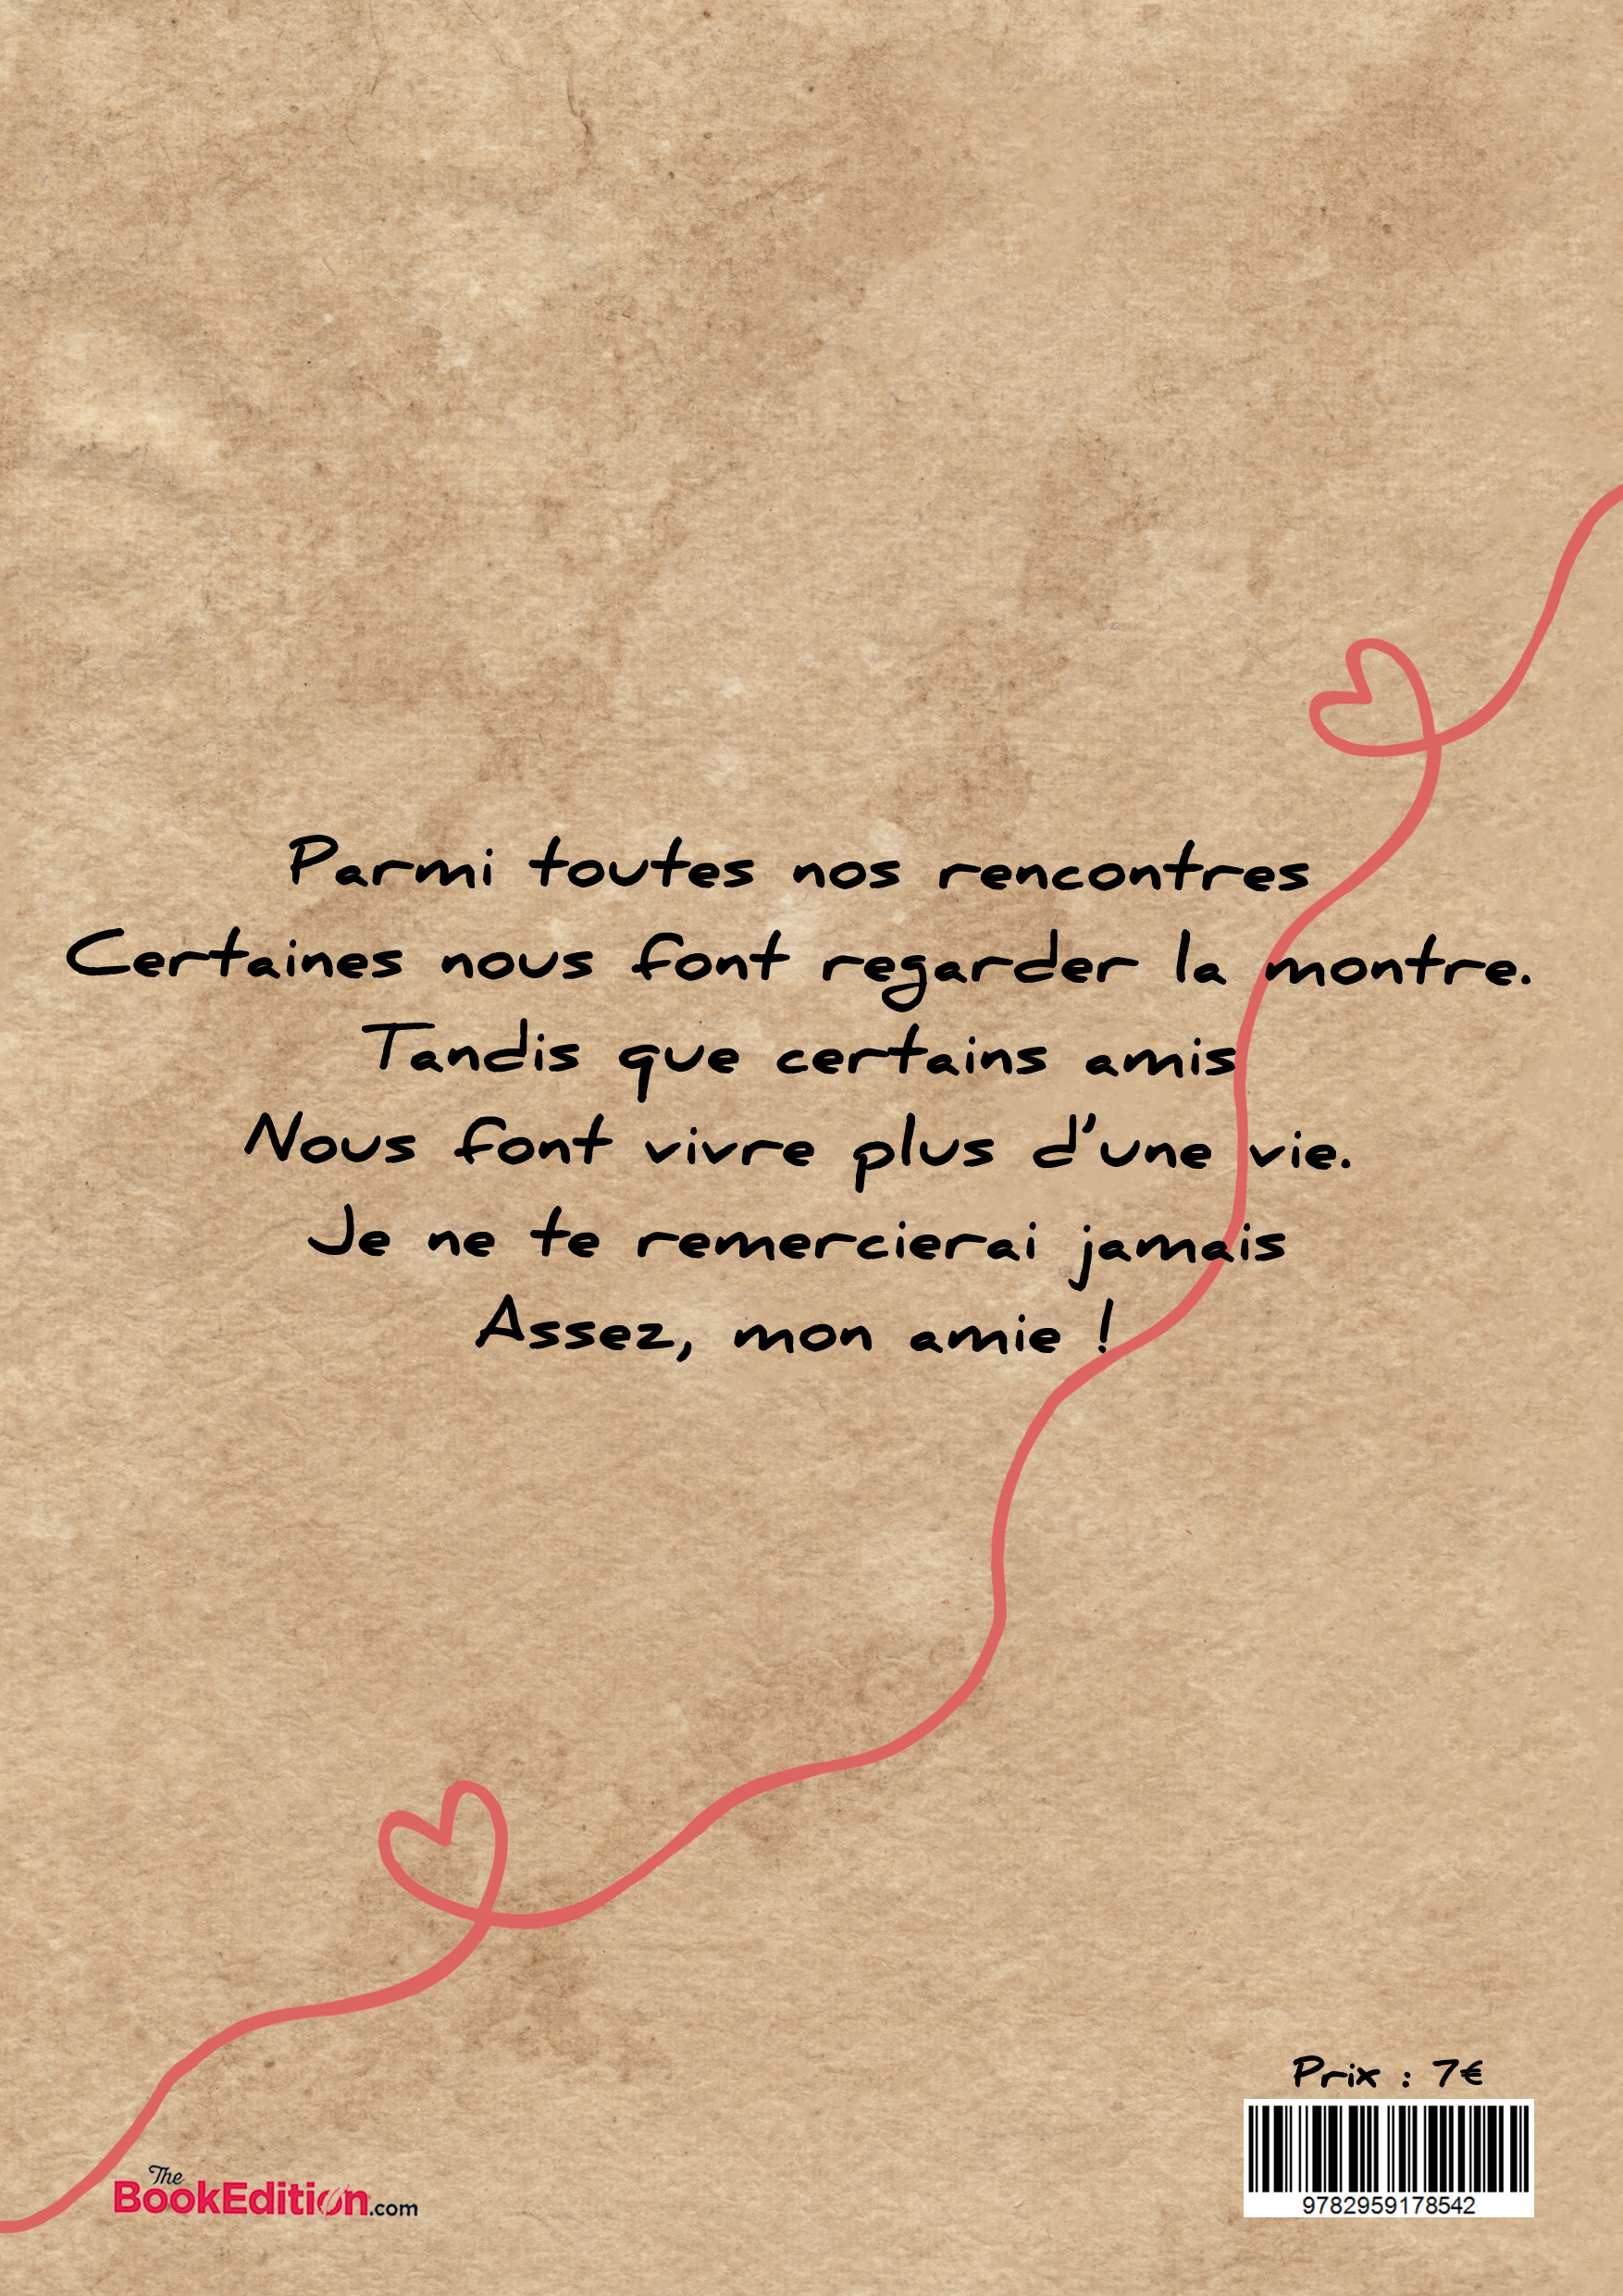 Parmi toutes nos rencontres
Certaines nous font regarder la montre.
Tandis que certains amis
Nous font vivre plus d'une vie.
Je ne te remercierai jamais
Assez, mon amie !
Prix : 7€
9782959178542
The
BookEdition.com